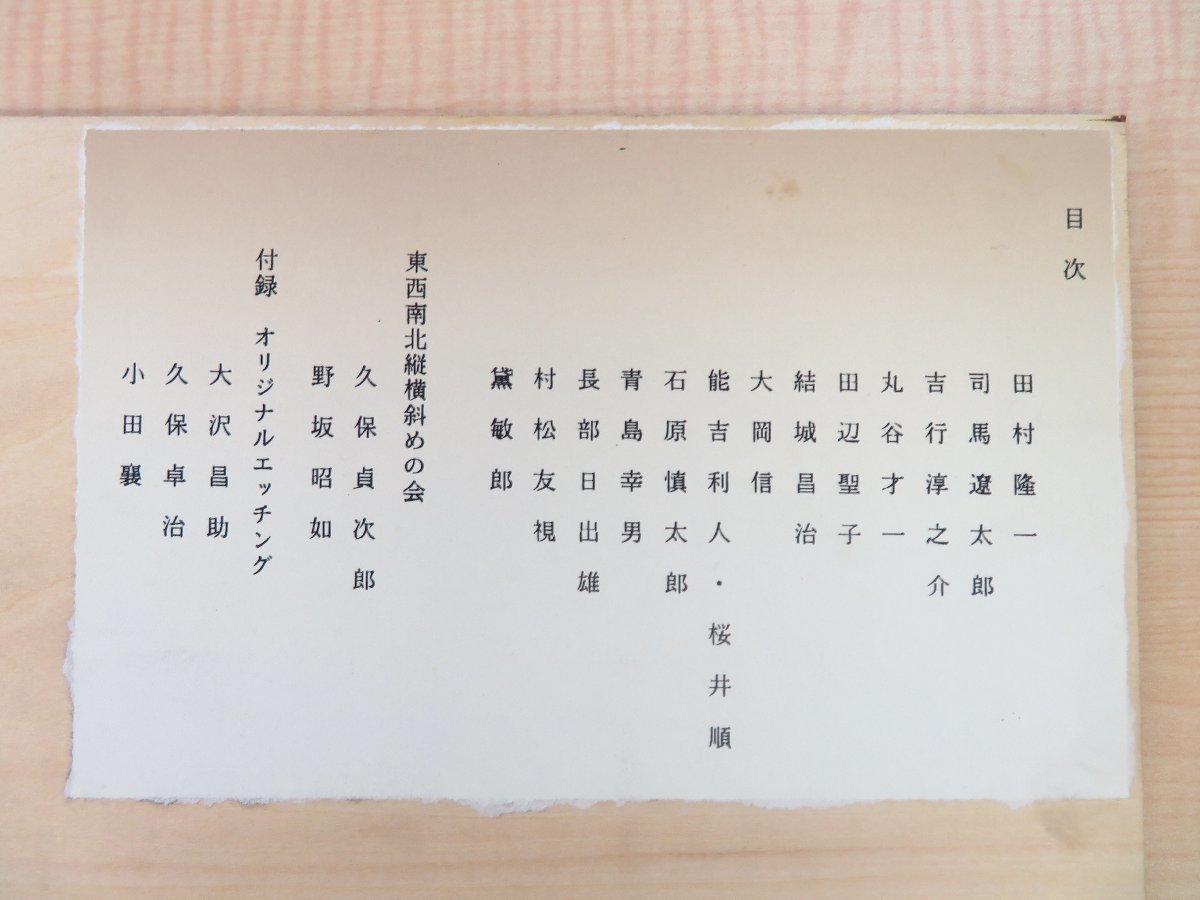 目次
田村隆一
司馬遼太郎
吉行淳之介
丸谷才一
田辺聖子
結城昌治
大岡信
能吉利人・桜井順
石原慎太郎
青島幸男
長部日出雄
村松友視
黛敏郎
東西南北縦横斜めの会
久保貞次郎
野坂昭如
付録　オリジナルエッチング
大沢昌助
久保卓治
小田襄